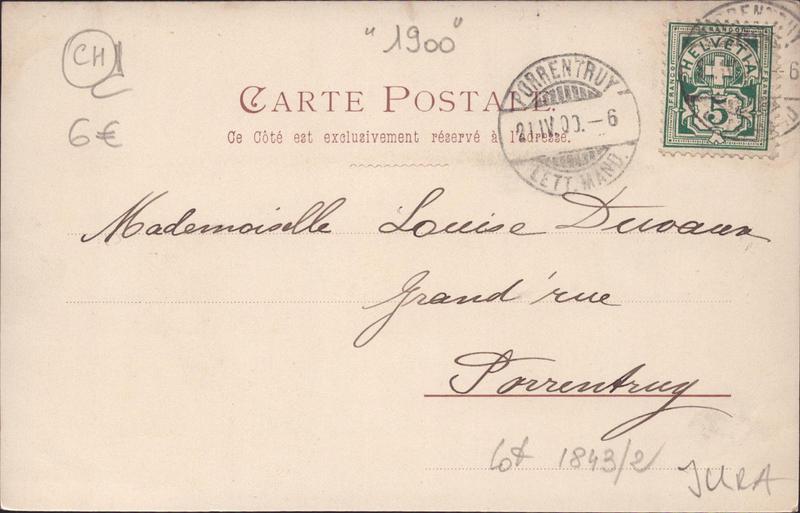 "1900"
CH
6€
CARTE POSTALE.
Ce Côté est exclusivement réservé à l'adresse.
PORRENTRUY
21.IV.00.–6
LETT. MAND.
FRANCO
HELVETIA
FRANCO
FRANCO
5
PORRENTRUY
–6
Mademoiselle Louise Duvaux
Grand'rue
Porrentruy
Lot 1843/2
JURA